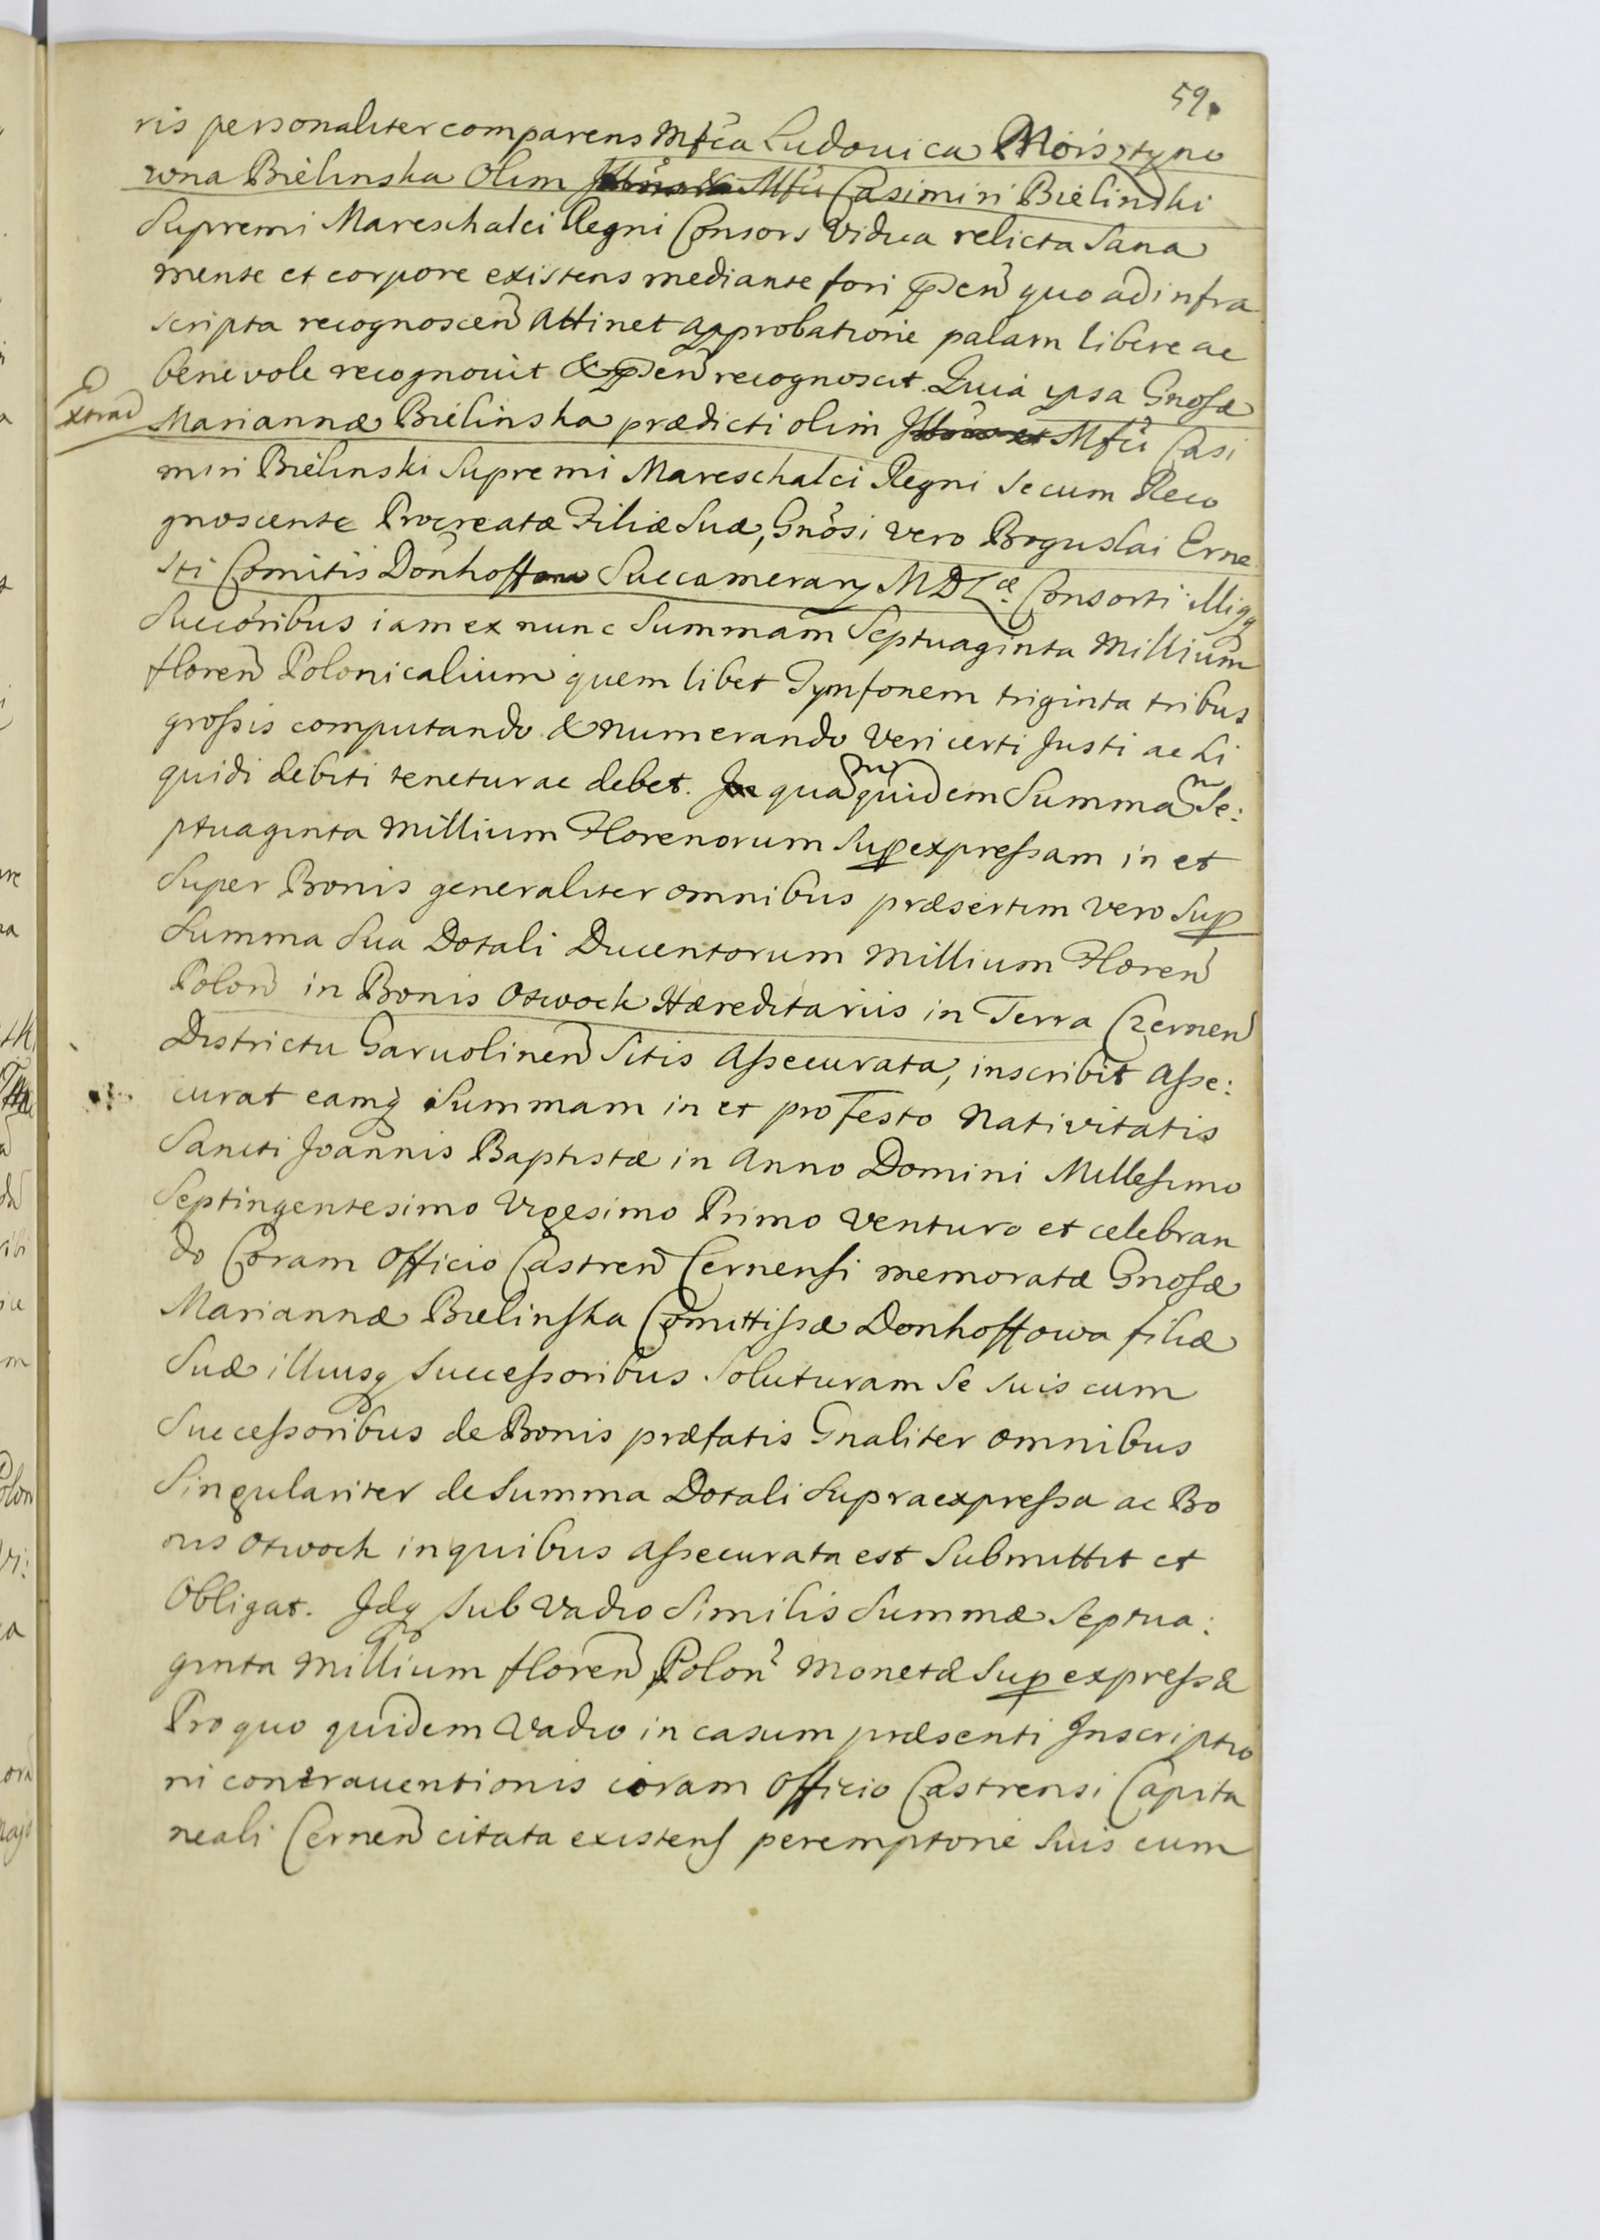 59.
ris personaliter comparens Mfca Ludouica Morsztyno
wna Bielinska Olim Mfci Casimiri Bielinski
Supremi Mareschalci Regni Consors Vidua relicta Sana
mente et corpore existens mediante fori pden quo ad infra
scripta recognoscen Attinet approbatione palam libere ac
benevole recognovit & pden recognoscit. Quia ipsa Gnosæ
Extrad
Mariannæ Bielinska prædicti olim Mfci Casi
miri Bielinski Supremi Mareschalci Regni Secum Reco
gnoscente Procreatæ Filiæ Suæ, Gnosi vero Boguslai Erne
sti Comitis Donhoff Succamerarij MDLæ Consorti illiqz
Succoribus iam ex nunc Summam Septuaginta Millium
floren Polonicalium quem libet Tynfonem triginta tribus
grossis computando & numerando Veri certi Justi ac Li
quidi debiti tenetur ac debet. quam quidem Summam Se:
ptuaginta Millium Florenorum Sup expressam in et
Super Bonis generaliter omnibus præsertim vero Sup
Summa Sua Dotali Ducentorum Millium Floren
Polon in Bonis Otwock Hæreditariis in Terra Czernen
Districtu Garuolinen Sitis Assecurata, inscribit Asse:
curat eamq Summam in et pro Festo Nativitatis
Sancti Joannis Baptistæ in Anno Domini Millesimo
Septingentesimo Vigesimo Primo Venturo et celebran
do Coram Officio Castren Cernensi memoratæ Gnosæ
Mariannæ Bielinska Comittissæ Donhoffowa filiæ
Suæ illiusq Successoribus Soluturam Se Suis cum
Successoribus de Bonis præfatis Gnaliter omnibus
Singulariter de Summa Dotali Supraexpressa ac Bo
nis Otwock in quibus assecurata est Submittit et
Obligat. Idq Sub Vadio Similis Summæ Septua:
ginta Millium floren Polon Monetæ Sup expressæ
Pro quo quidem Vadio in casum præsenti Inscriptio
ni contraventionis coram Officio Castrensi Capita
neali Cernen citata existens peremptorie Suis cum